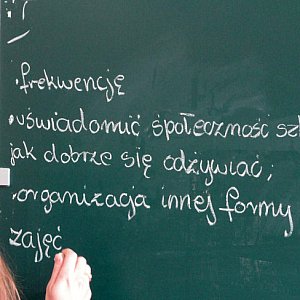 • frekwencję
• uświadomić społeczność
jak dobrze się odżywiać;
• organizacja innej formy
zajęć